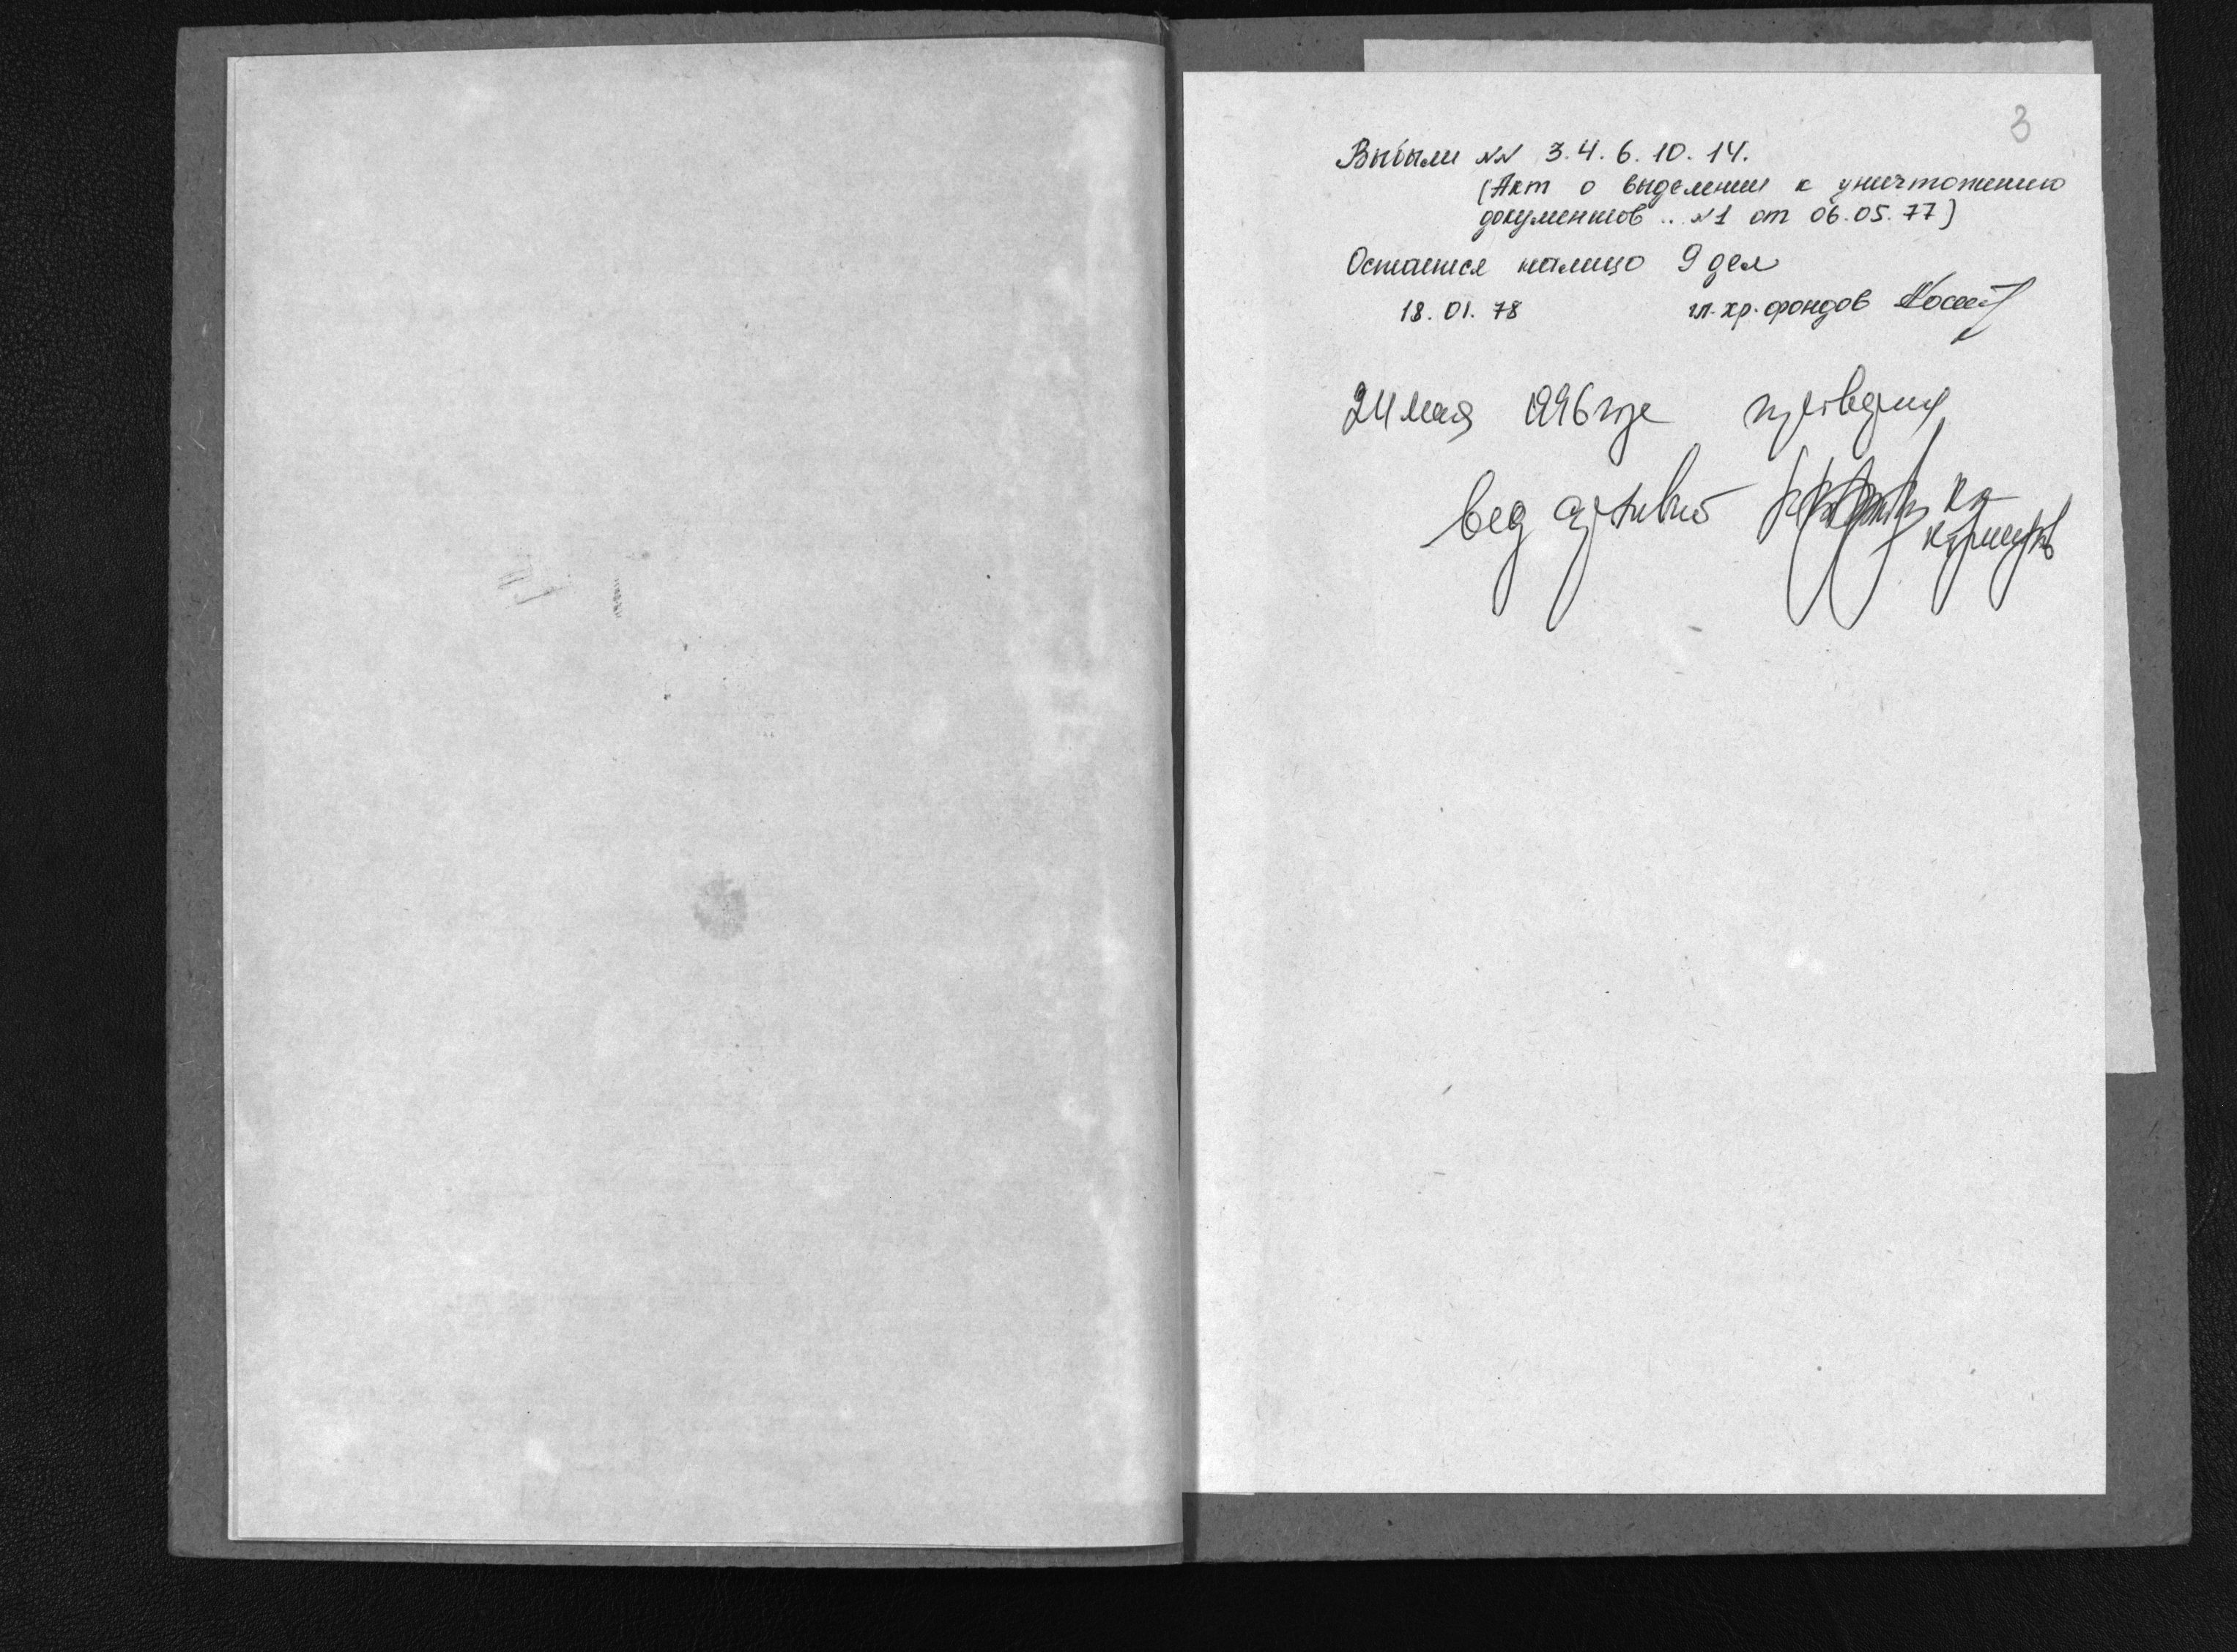 3
Выбыли №№ 3.4.6.10.14.
(Акт о выделении к уничтожению
документов .. №1 от 06.05.77)
Остается налицо 9 дел
18.01.78 гл. хр. фондов
24 мая 1996 года проверил
вед архивист